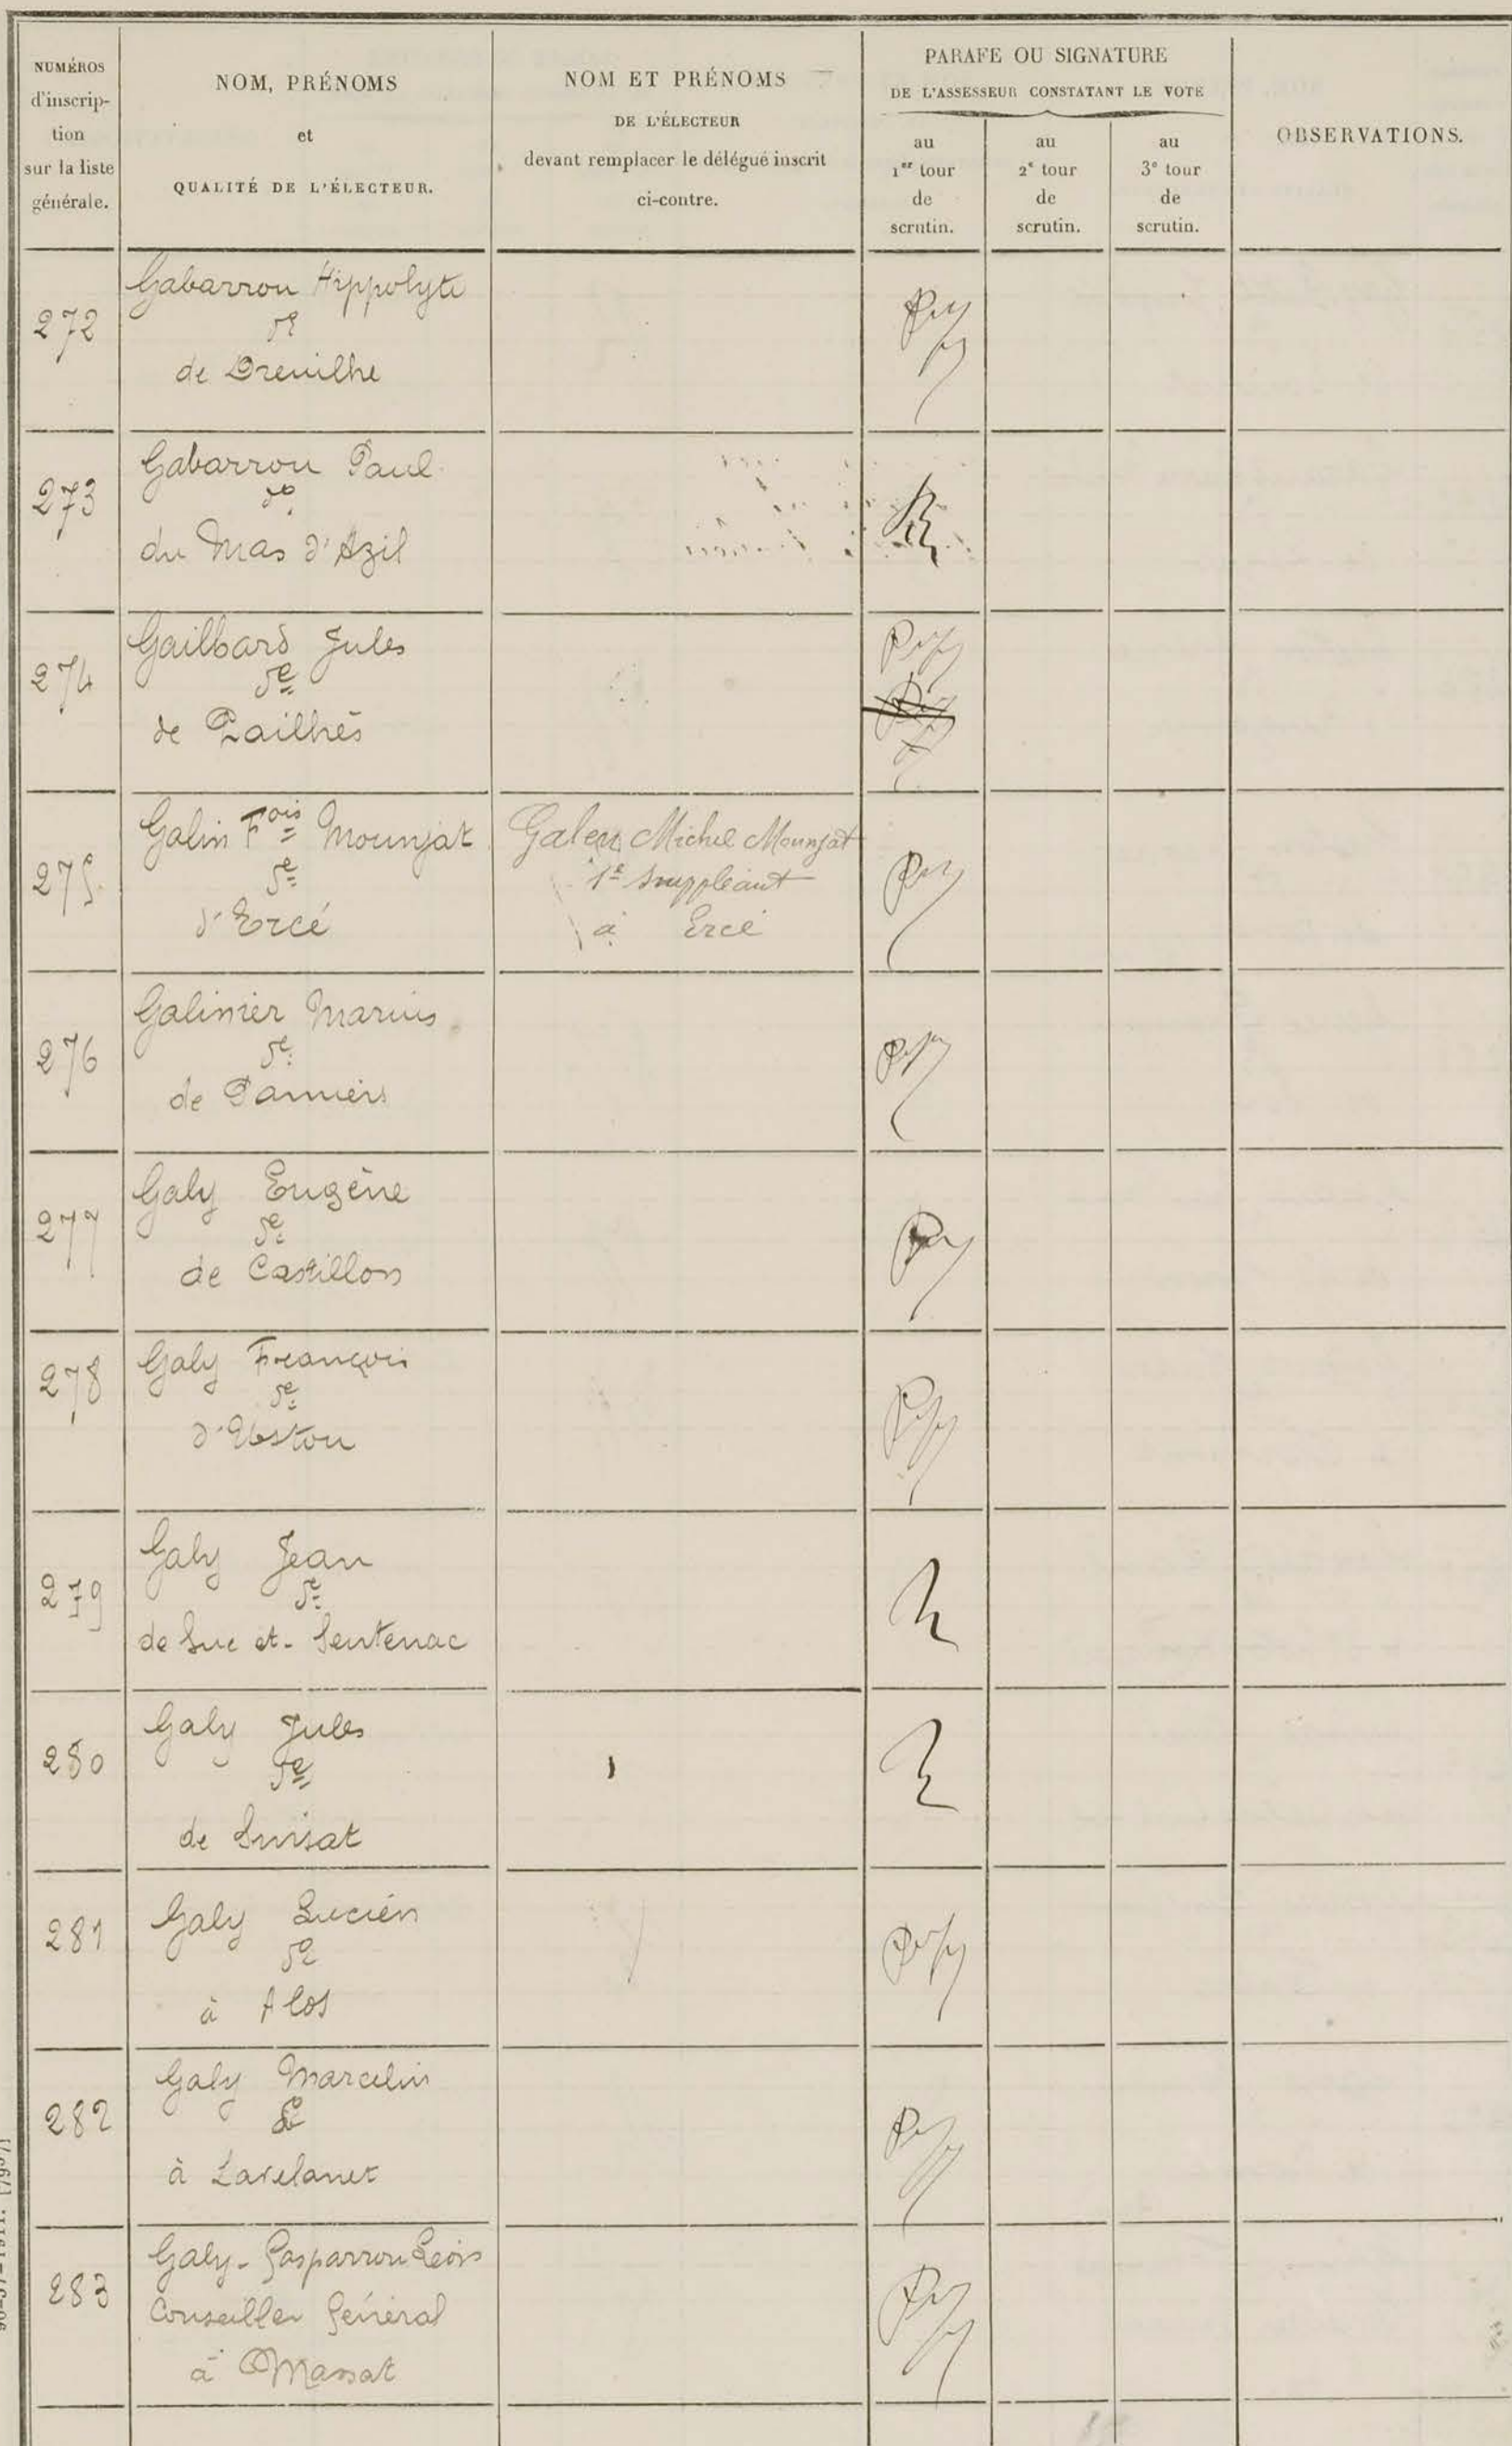 NUMÉROS
d'inscrip-
tion
sur la liste
générale.
NOM, PRÉNOMS
et
QUALITÉ DE L'ÉLECTEUR.
NOM ET PRÉNOMS
DE L'ÉLECTEUR
devant remplacer le délégué inscrit
ci-contre.
PARAFE OU SIGNATURE
DE L'ASSESSEUR CONSTATANT LE VOTE
au
1er tour
de
scrutin.
au
2e tour
de
scrutin.
au
3e tour
de
scrutin.
OBSERVATIONS.
272
Gabarrou Hippolyte
de Dreuilhe
273
Gabarrou Paul
du Mas d'Azil
274
Gailhard Jules
de Pailhès
275
Galin Fois Mounjat
d'Ercé
Galen Michel Mounjat
1e suppléant
à Ercé
276
Galinier Marius
de Pamiers
277
Galy Eugène
de Castillon
278
Galy François
d'Ustou
279
Galy Jean
de Suc et-Sentenac
280
Galy Jules
de
281
Galy Lucien
à Alos
282
Galy Marcelin
à Lavelanet
283
Galy-Gasparrou Léon
Conseiller Général
à Massat